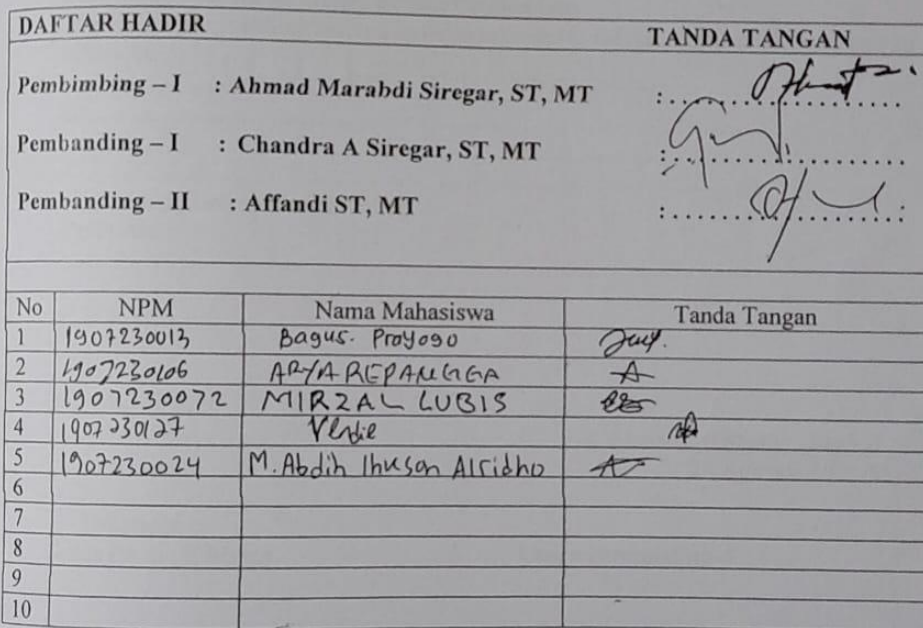 DAFTAR HADIR TANDA TANGAN
Pembimbing – I : Ahmad Marabdi Siregar, ST, MT :....................
Pembanding – I : Chandra A Siregar, ST, MT :....................
Pembanding – II : Affandi ST, MT :....................
No NPM Nama Mahasiswa Tanda Tangan
1 1907230013 Bagus. Prayogo
2 1907230106 ARYA REPANGGA
3 1907230072 MIRZAL LUBIS
4 1907230127
5 1907230024 M. Abdih Ihuson Alridho
6
7
8
9
10